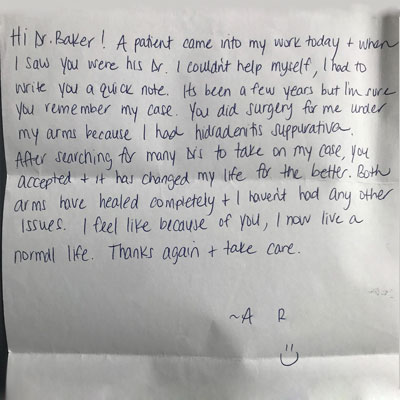 Hi Dr. Baker! A patient came into my work today + when
I saw you were his Dr. I couldn't help myself, I had to
write you a quick note. Its been a few years but I'm sure
you remember my case. You did surgery for me under
my arms because I had hidradenitis suppurativa.
After searching for many Drs to take on my case, you
accepted + it has changed my life for the better. Both
arms have healed completely + I haven't had any other
issues. I feel like because of you, I now live a
normal life. Thanks again + take care.
~A R